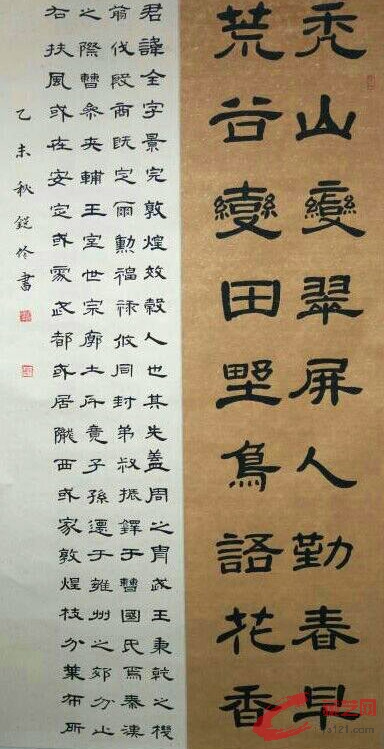 禿山變翠屏人勤春早
荒谷變田野鳥語花香
君諱全字景完敦煌效穀人也其先蓋周之胄武王秉乾之機
翦伐殷商既定爾勳福祿攸同封弟叔振鐸于曹國氏焉秦漢
之際曹參夾輔王室世宗廓土斥竟子孫遷于雍州之郊分止
右扶風或在安定或處武都或居隴西或家敦煌枝分葉布所
乙未秋書
艺网
ya121.com